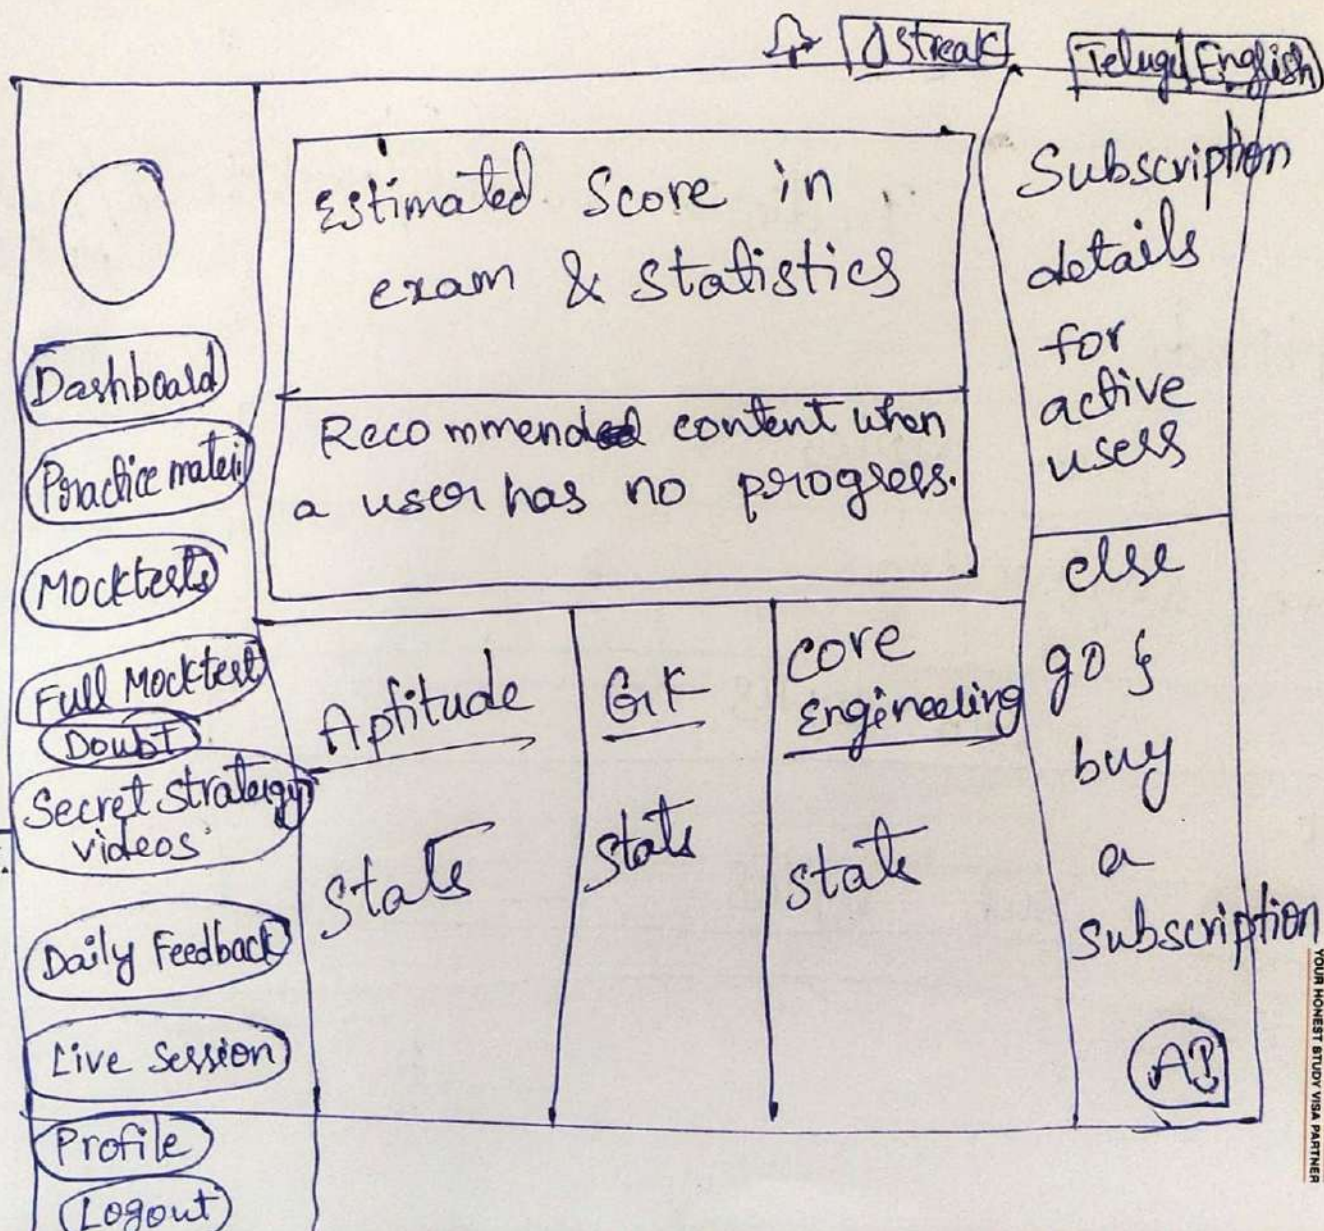 0streak
Telugu English
Dashboard
Practice materi
Mocktests
Full Mocktest
Doubt
Secret Stratergy
videos
Daily Feedback
Live Session
Profile
Logout
Estimated Score in
exam & statistics
Recommended content when
a user has no progress.
Aptitude
Stats
GK
Stats
core
Engineering
Stats
Subscription
details
for
active
users
else
go &
buy
a
subscription
YOUR HONEST STUDY VISA PARTNER